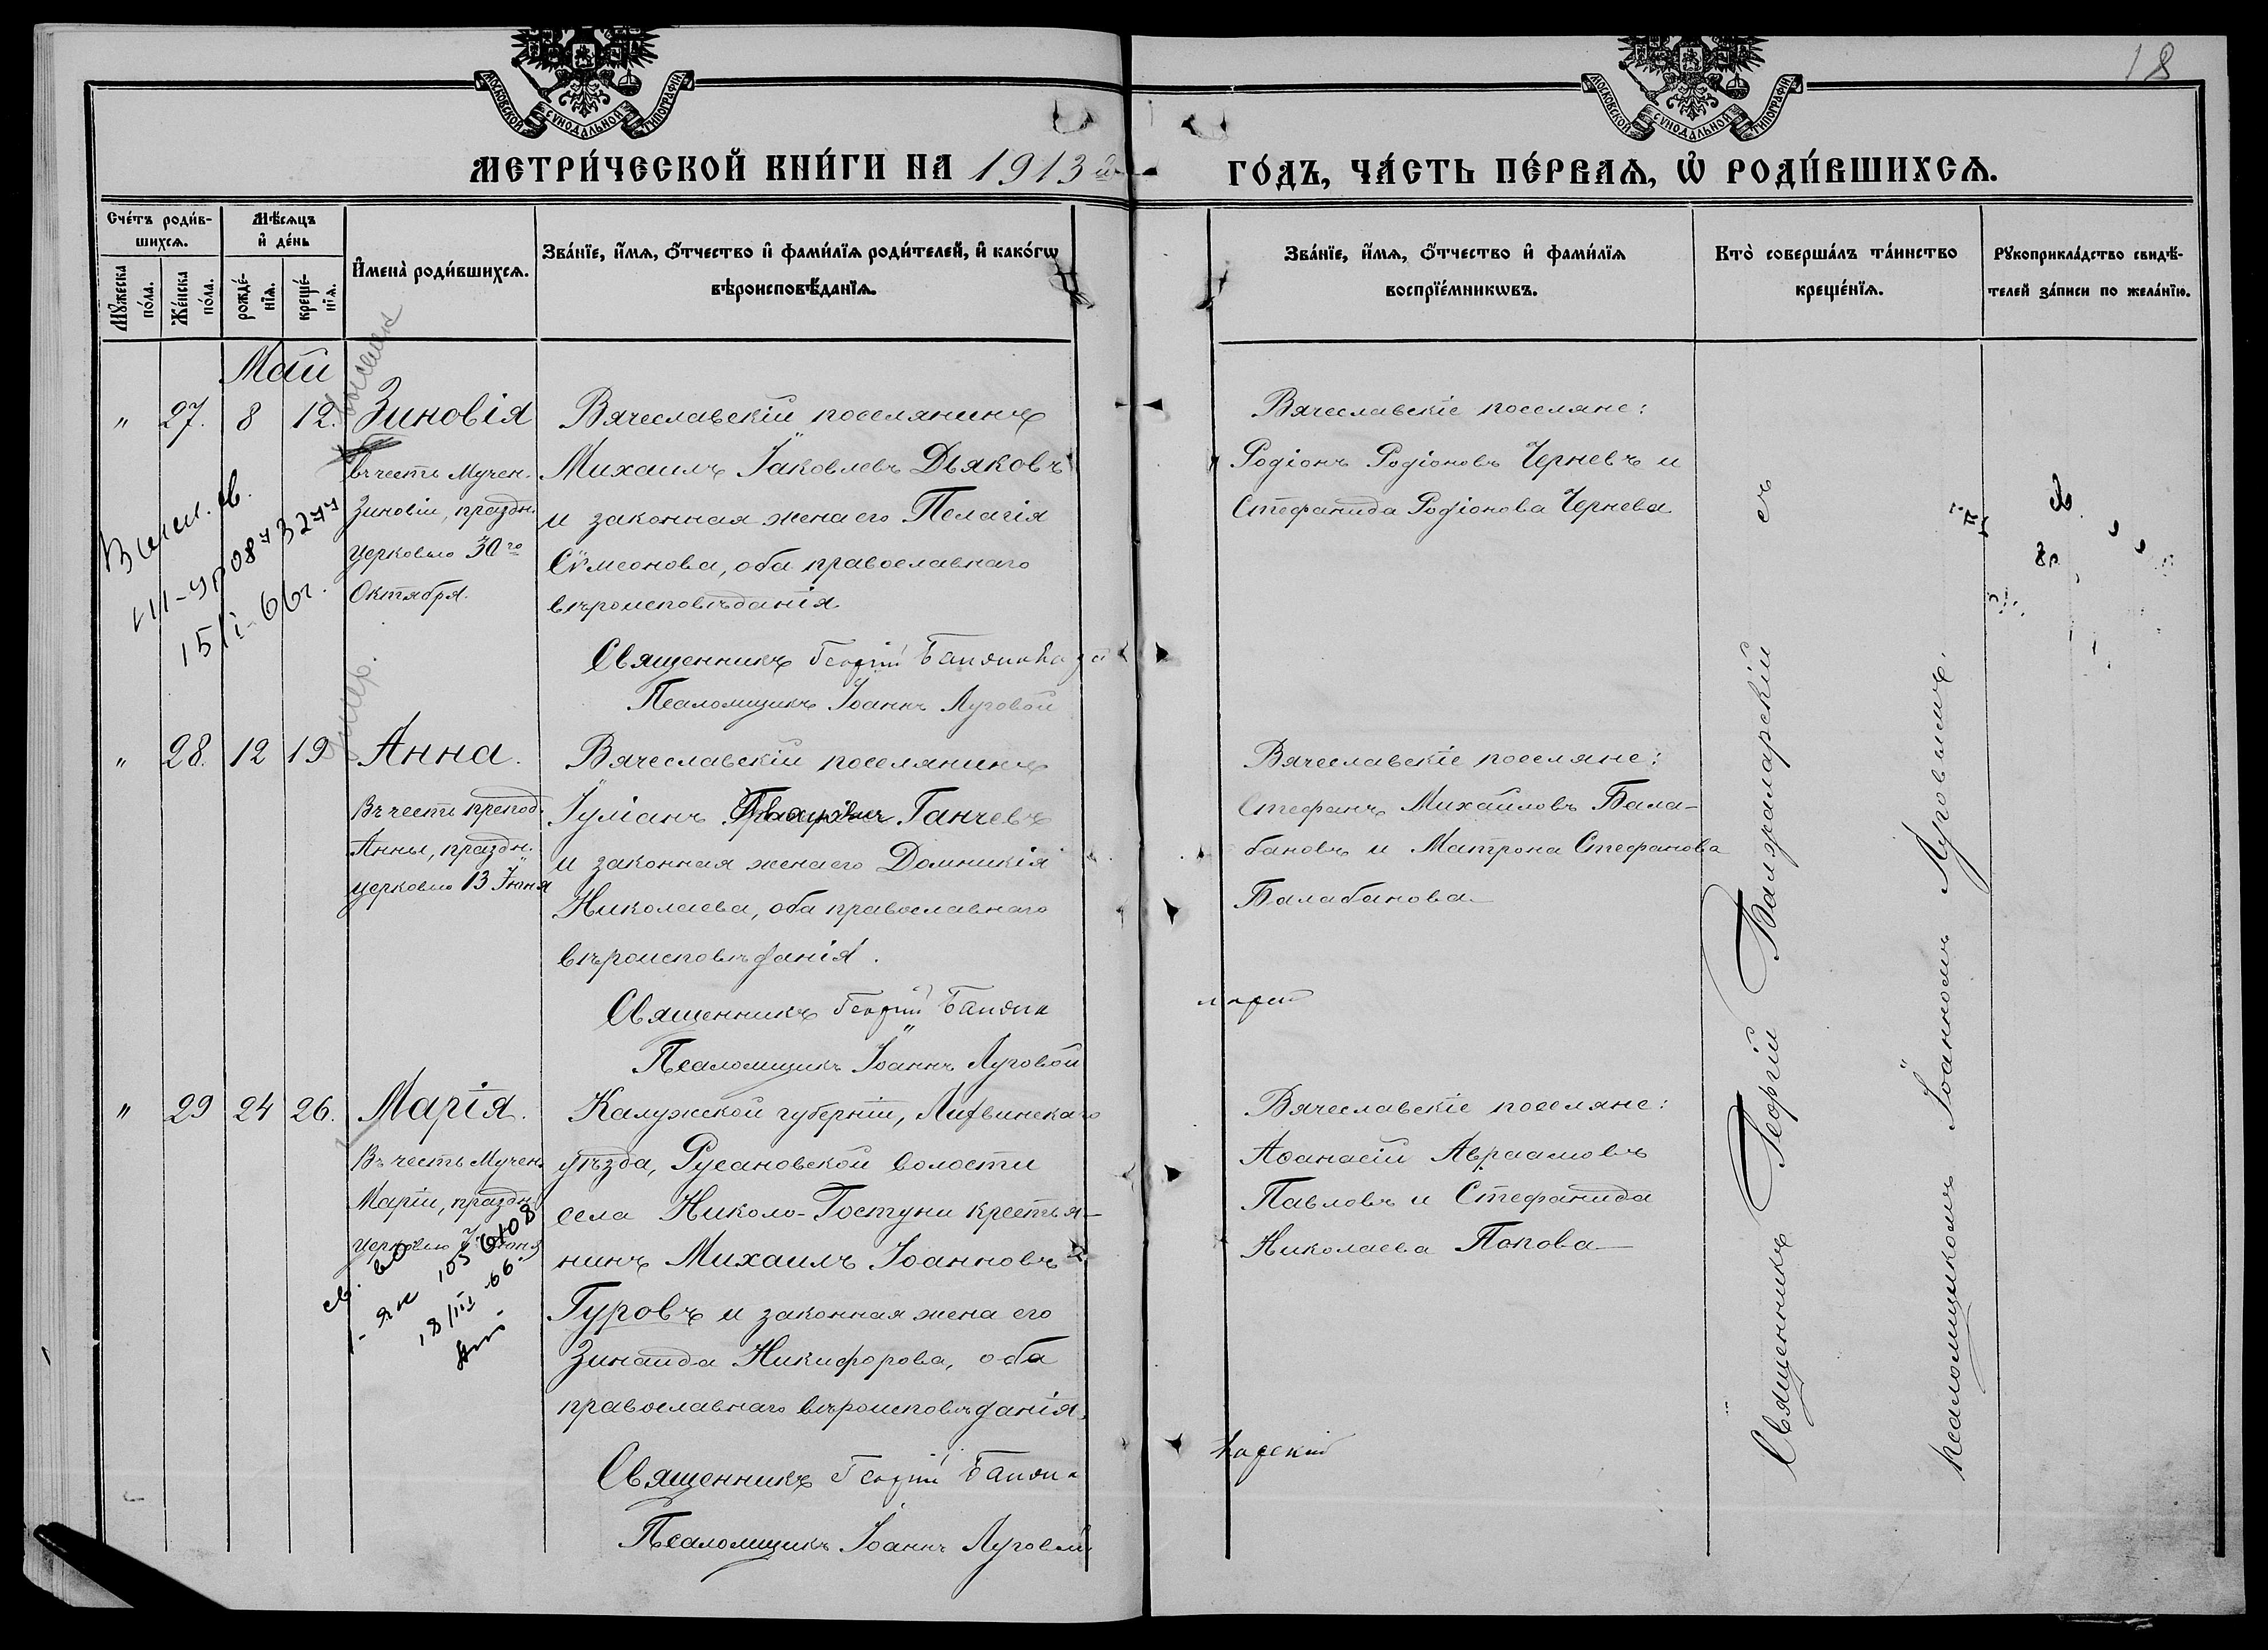 18
МОСКОВСКОЙ СѴНОДАЛЬНОЙ ТИПОГРАФІИ
МОСКОВСКОЙ СѴНОДАЛЬНОЙ ТИПОГРАФІИ
МЕТРИ́ЧЕСКОЙ КНИ́ГИ НА 1913 й
ГО́ДЪ, ЧА́СТЬ ПЕ́РВАѦ, Ѡ҆ РОДИ́ВШИХСѦ.
Сче́тъ роди́в-
шихсѧ.
Мѣ́сѧцъ
и҆ де́нь
Мꙋ́жеска
по́ла.
Же́нска
по́ла.
рожде́-
нїѧ.
креще́-
нїѧ.
И҆мена̀ роди́вшихсѧ.
Зва́нїе, и҆́мѧ, ѻ҆́тчество и҆ фами́лїѧ роди́телей, и҆ како́гѡ
вѣроисповѣ́данїѧ.
Зва́нїе, и҆́мѧ, ѻ҆́тчество и҆ фами́лїѧ
воспрїе́мникѡвъ.
Кто̀ соверша́лъ та́инство
креще́нїѧ.
Рꙋкоприкла́дство свидѣ́-
телей за́писи по жела́нїю.
Май
" 27. 8 12. Зиновія
въ честь Мучен.
Зиновіи, праздн.
церковью 30го
Октября.
Вячеславскій поселянинъ
Михаилъ Іаковлевъ Дьяковъ
и законная жена его Пелагія
Сѵмеонова, оба православнаго
вѣроисповѣданія
Священникъ Георгій
Псаломщикъ Іоаннъ Луговой
Вячеславскіе поселяне:
Родіонъ Родіоновъ Черневъ и
Стефанида Родіонова Чернева
св.
15/I-66г.
умер.
" 28. 12 19 Анна.
Въ честь препод.
Анны, праздн.
церковью 13 Іюня
Вячеславскій поселянинъ
Іуліанъ Ганчевъ
и законная жена его Домникія
Николаева, оба православнаго
вѣроисповѣданія.
Священникъ Георгій
Псаломщикъ Іоаннъ Луговой
Вячеславскіе поселяне:
Стефанъ Михайловъ Бала-
бановъ и Матрона Стефанова
Балабанова
" 29 24 26. Марія.
Въ честь Мучен.
Маріи, праздн.
церковью Іюня
18/III 66.
Калужской губерніи, Лихвинскаго
уѣзда, Русановской волости
села Николо-Гостуни крестья-
нинъ Михаилъ Іоанновъ
Гуровъ и законная жена его
Зинаида Никифорова, оба
православнаго вѣроисповѣданія.
Священникъ Георгій
Псаломщикъ Іоаннъ Луговой
Вячеславскіе поселяне:
Аѳанасій Авраамовъ
Павловъ и Стефанида
Николаева Попова
Священникъ Георгій съ
псаломщикомъ Іоанномъ Луговымъ.